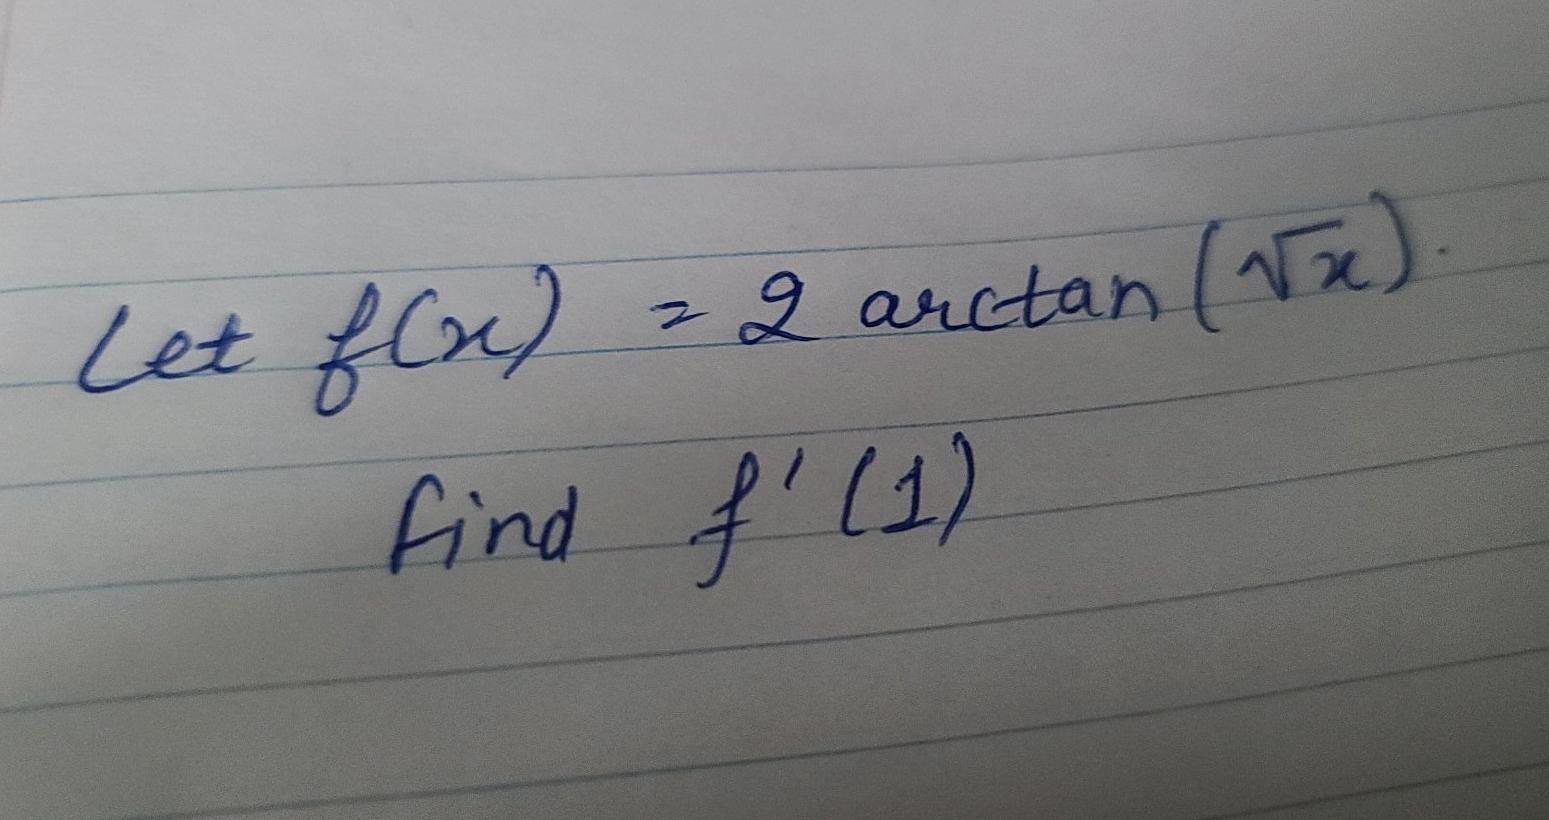 Let f(x) = 2 arctan (√x).
find f' (1)